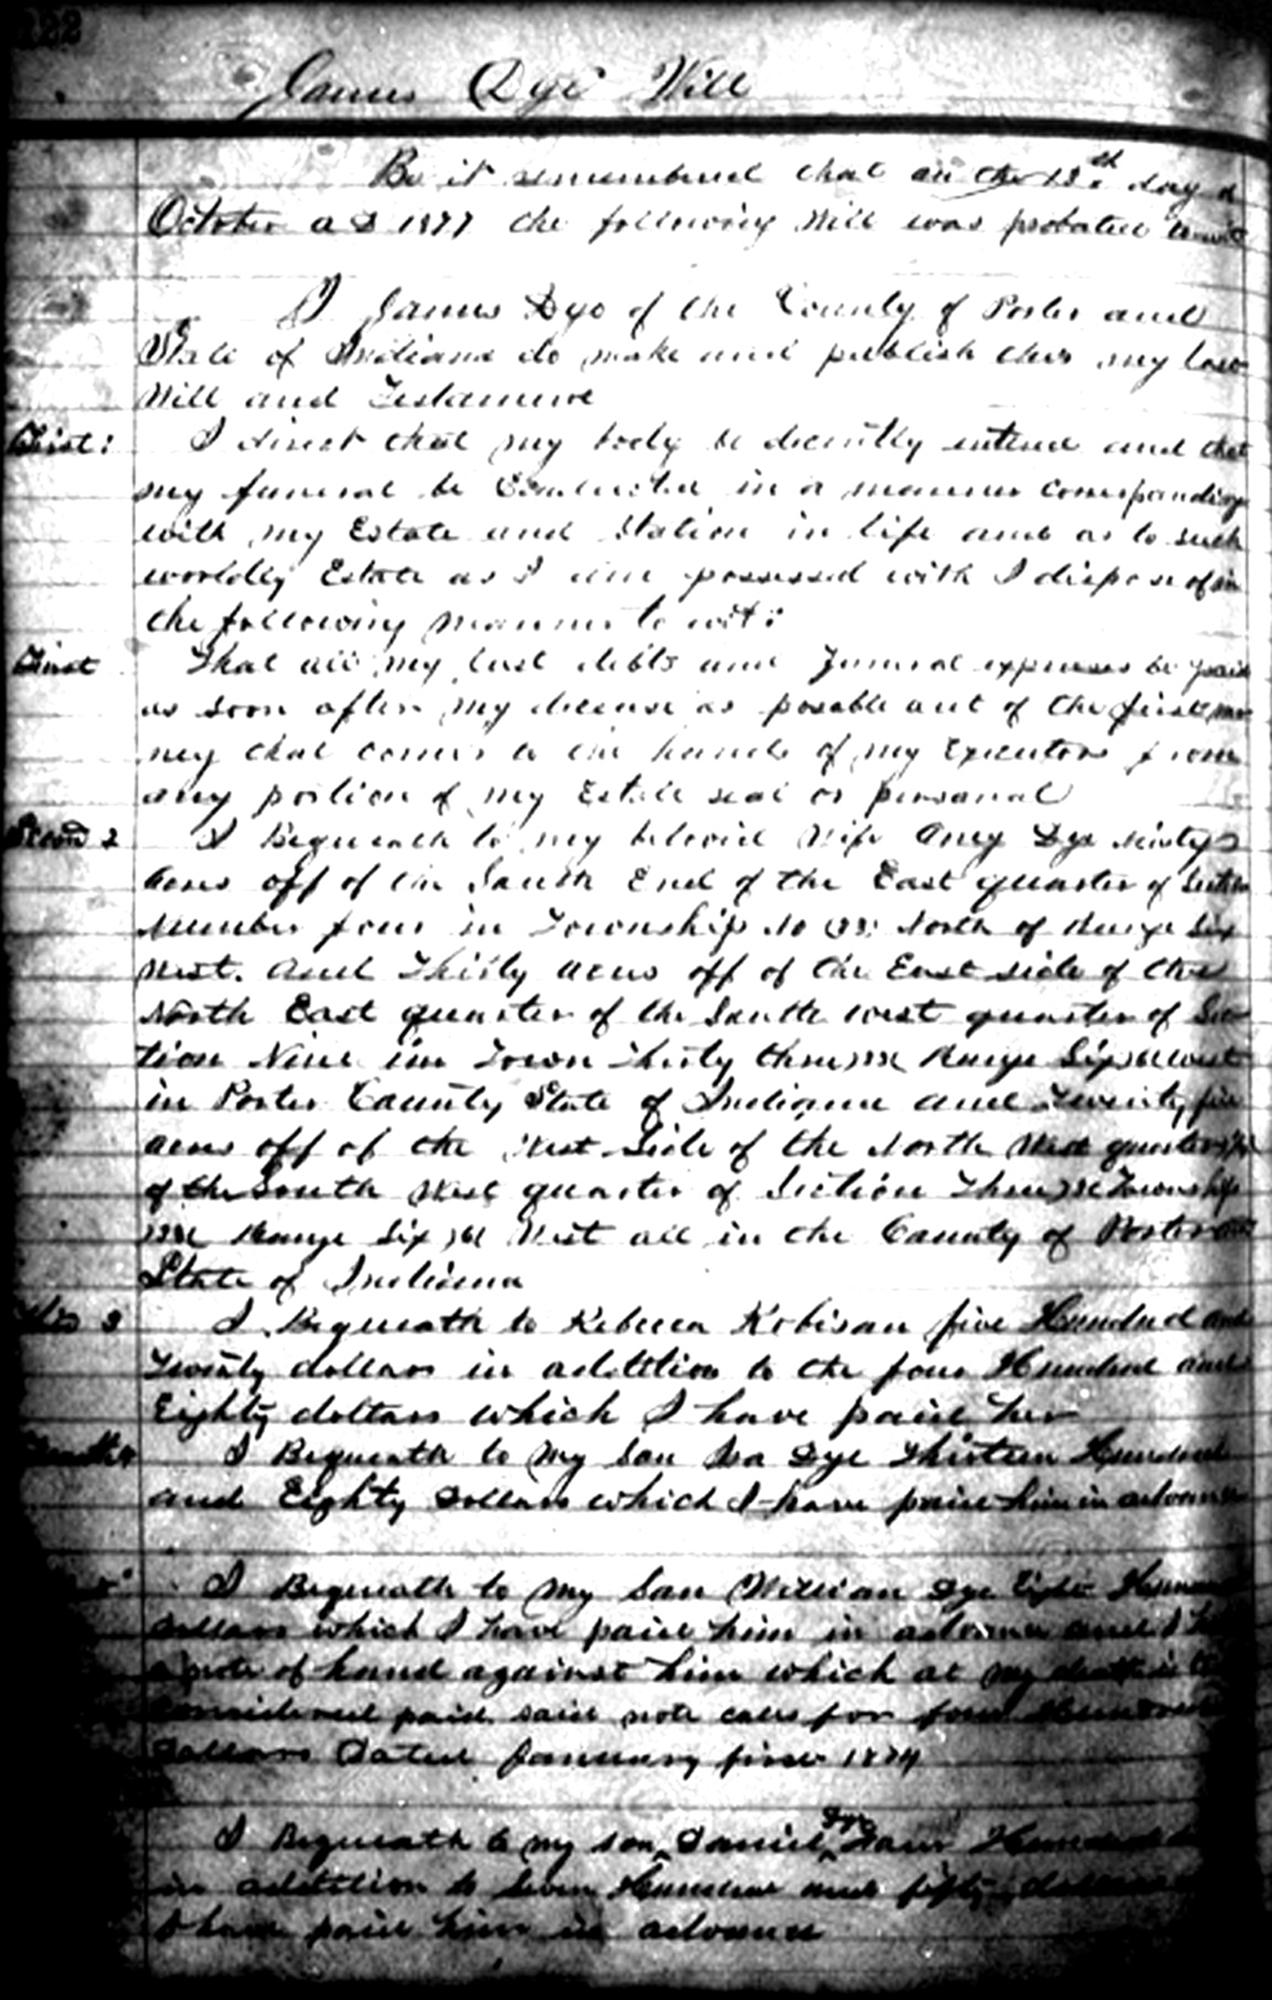 James Dye Will
Be it remembered that on the 12th day of
October A D 1877 the following Will was probated to wit
I James Dye of the County of Porter and
State of Indiana do make and publish this my last
Will and Testament
First: I direct that my body be decently intered and that
my funeral be Conducted in a manner corresponding
with my Estate and Station in life and as to such
worldly Estate as I am possessed with I dispose of in
the following manner to wit:
First That all my just debts and Funeral expenses be paid
as soon after my decease as posable out of the first mo
ney that comes to the hands of my Executors from
any portion of my Estate real or personal
Second 2 I Bequeath to my beloved Wife Aney Dye Ninty
Acres off of the South End of the East quarter of Section
Number four in Township No (33) North of Range Six
West. And Thirty acres off of the East side of the
North East quarter of the South west quarter of Sec
tion Nine in Town Thirty three (33) Range Six (6) West
in Porter County State of Indiana and Twenty five
acres off of the West Side of the North West quarter
of the South West quarter of Section Three (3) Township
(33) Range Six (6) West all in the County of Porter and
State of Indiana
3 I Bequeath to Rebecca Robisan five Hundred and
Twenty dollars in addition to the four Hundred and
Eighty dollars which I have paid her
I Bequeath to my Son Ira Dye Thirteen Hundred
and Eighty Dollars which I have paid him in advance
I Bequeath to my Son William Dye Eight Hundred
dollars which I have paid him in advance and I
a note of hand against him which at my death is to
considered paid said note calls for four Hundred
Dollars Dated January first 1874
I Bequeath to my son Daniel Dye Four Hundred
in addition to Seven Hundred and fifty dollars
I have paid him in advance